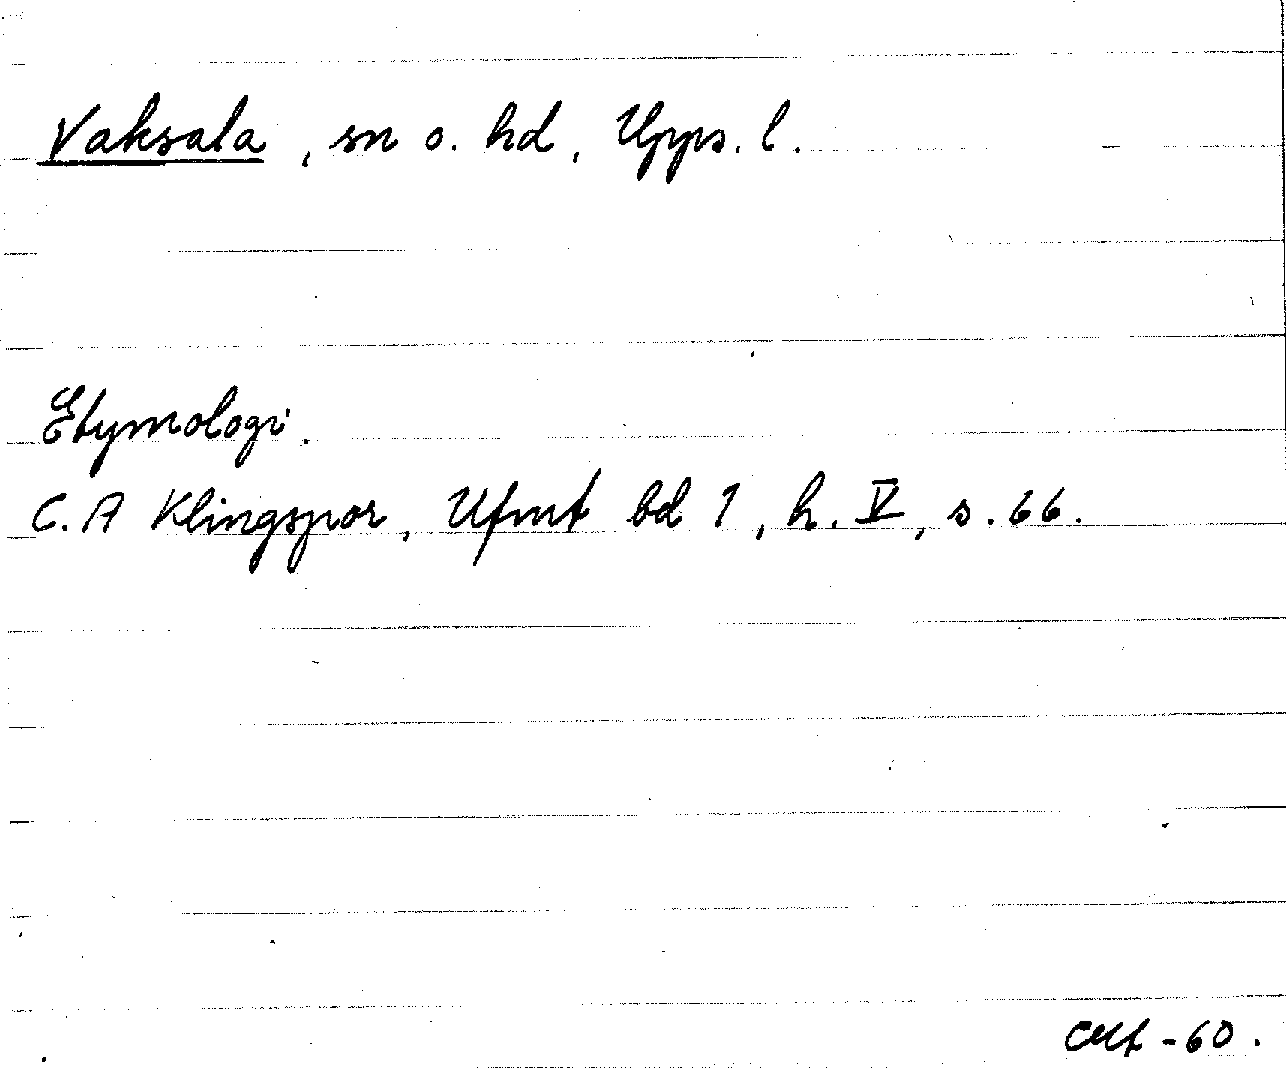 Vaksala, sn o. hd, Upps. l.
Etymologi.
C. A Klingspor, Ufmt bd 1, h. V, s. 66.
-60.